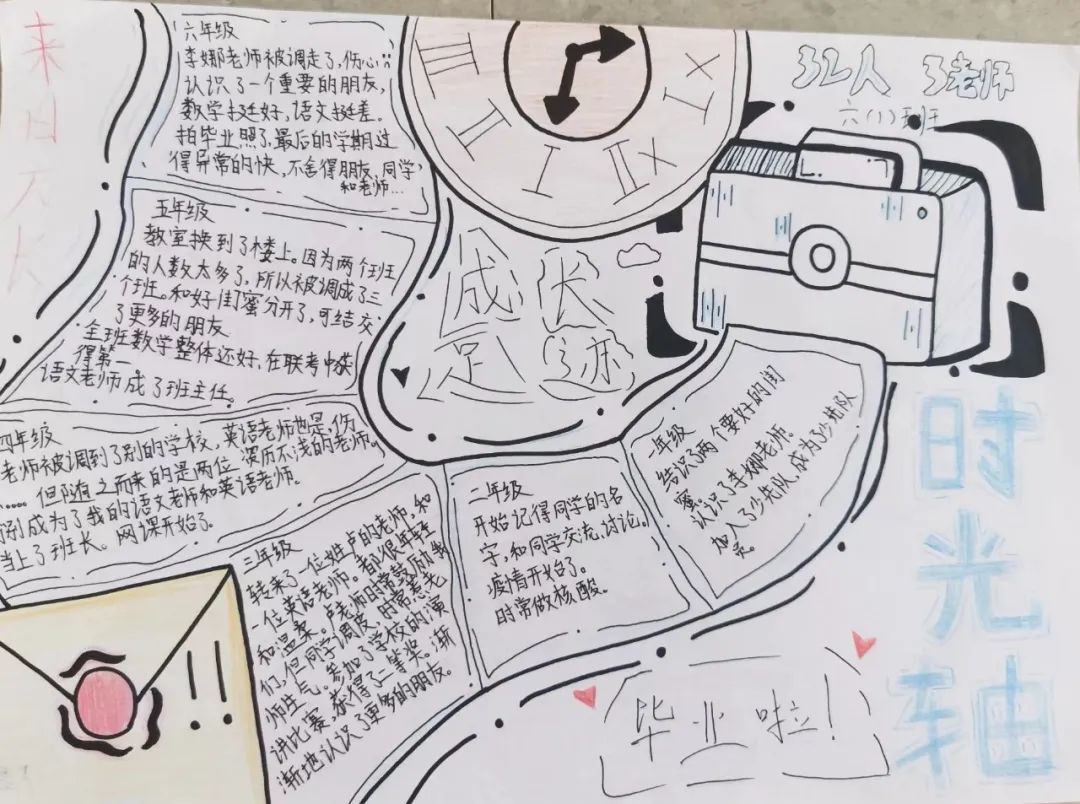 来日方长
六年级
李娜老师被调走了,伤心
认识了一个重要的朋友,
数学挺好,语文挺差。
拍毕业照了,最后的学期过
得异常的快,不舍得朋友,同学
和老师...
五年级
教室换到了楼上。因为两个班
的人数太多了,所以被调成了三
个班。和好闺蜜分开了,可结交
了更多的朋友
全班数学整体还好,在联考中获
得第一
语文老师成了班主任。
四年级
老师被调到了别的学校,英语老师也是,伤
......但随之而来的是两位资历不浅的老师。
成为了我的语文老师和英语老师。
当上了班长。网课开始了。
三年级
转来了一位姓卢的老师。和
一位英语老师。都很年轻
和温柔。卢老师时常鼓励我
们,但同学调皮,时常惹老
师生气,参加了学校的演
讲比赛,获得了一等奖。渐
渐地认识了更多的朋友。
二年级
开始记得同学的名
字,和同学交流,讨论。
疫情开始了。
时常做核酸。
一年级
结识了两个要好的闺
蜜,认识了李娜老师。
加入了少先队,成为了少先队
员。
成长
足迹
32人 3老师
六(1)班
时光轴
毕业啦!
III
II
I
IX
X
!!